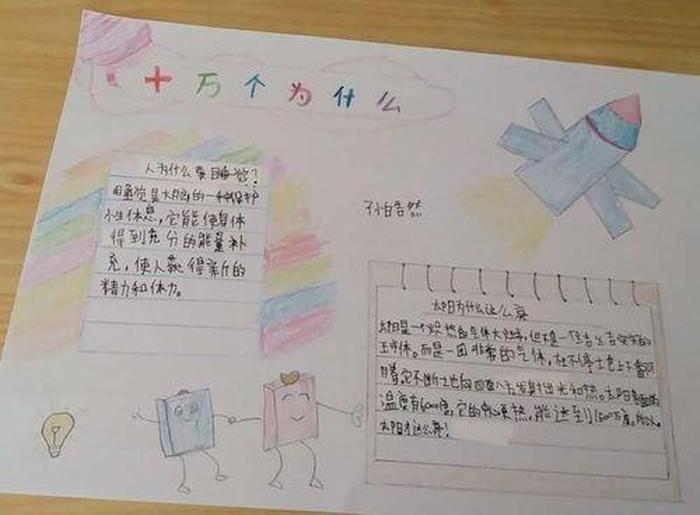 十万个为什么
人为什么要睡觉?
睡觉是大脑的一种保护
性休息,它能使身体
得到充分的能量补
充,使人获得新的
精力和体力。
孙皓然
太阳为什么这么亮
太阳是一个炽热的气体大球,但不是一
王求体。而是一团非常的气体,
着它不断土也向四面八方发射出光和热。太阳表面的
温度有6000度,它的中心更热,能达到1500万度。所以
太阳才这么亮!